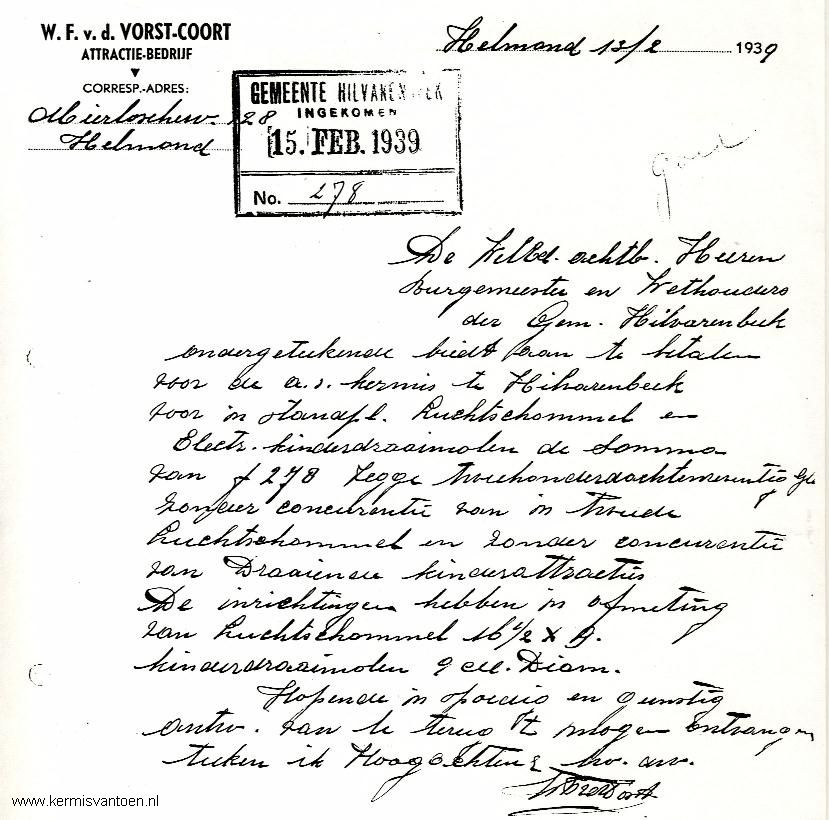 W. F. v. d. VORST-COORT
ATTRACTIE-BEDRIJF
CORRESP.-ADRES:
Mierloschew. 128
Helmond
Helmond 13/2 1939
GEMEENTE HILVARENBEEK
INGEKOMEN
15. FEB. 1939
No. 278
De WelEd. achtb. Heeren
Burgemeester en Wethouders
der Gem. Hilvarenbeek
ondergetekende biedt aan te betalen
voor de a.s. kermis te Hilvarenbeek
voor in standpl. Luchtschommel en
Electr. kinderdraaimolen de somma
van f 278 zegge tweehonderdachtenzeventig Gld
zonder concurentie van in tweede
Luchtschommel en zonder concurentie
van Draaiende kinderattracties
De inrichtingen hebben in afmeting
van Luchtschommel 16 1/2 X 9.
kinderdraaimolen 9 Diam.
Hopende in spoedig en gunstig
antw. van U terug 't mogen ontvangen
teken ik Hoogachtend uw. dw.
www.kermisvantoen.nl